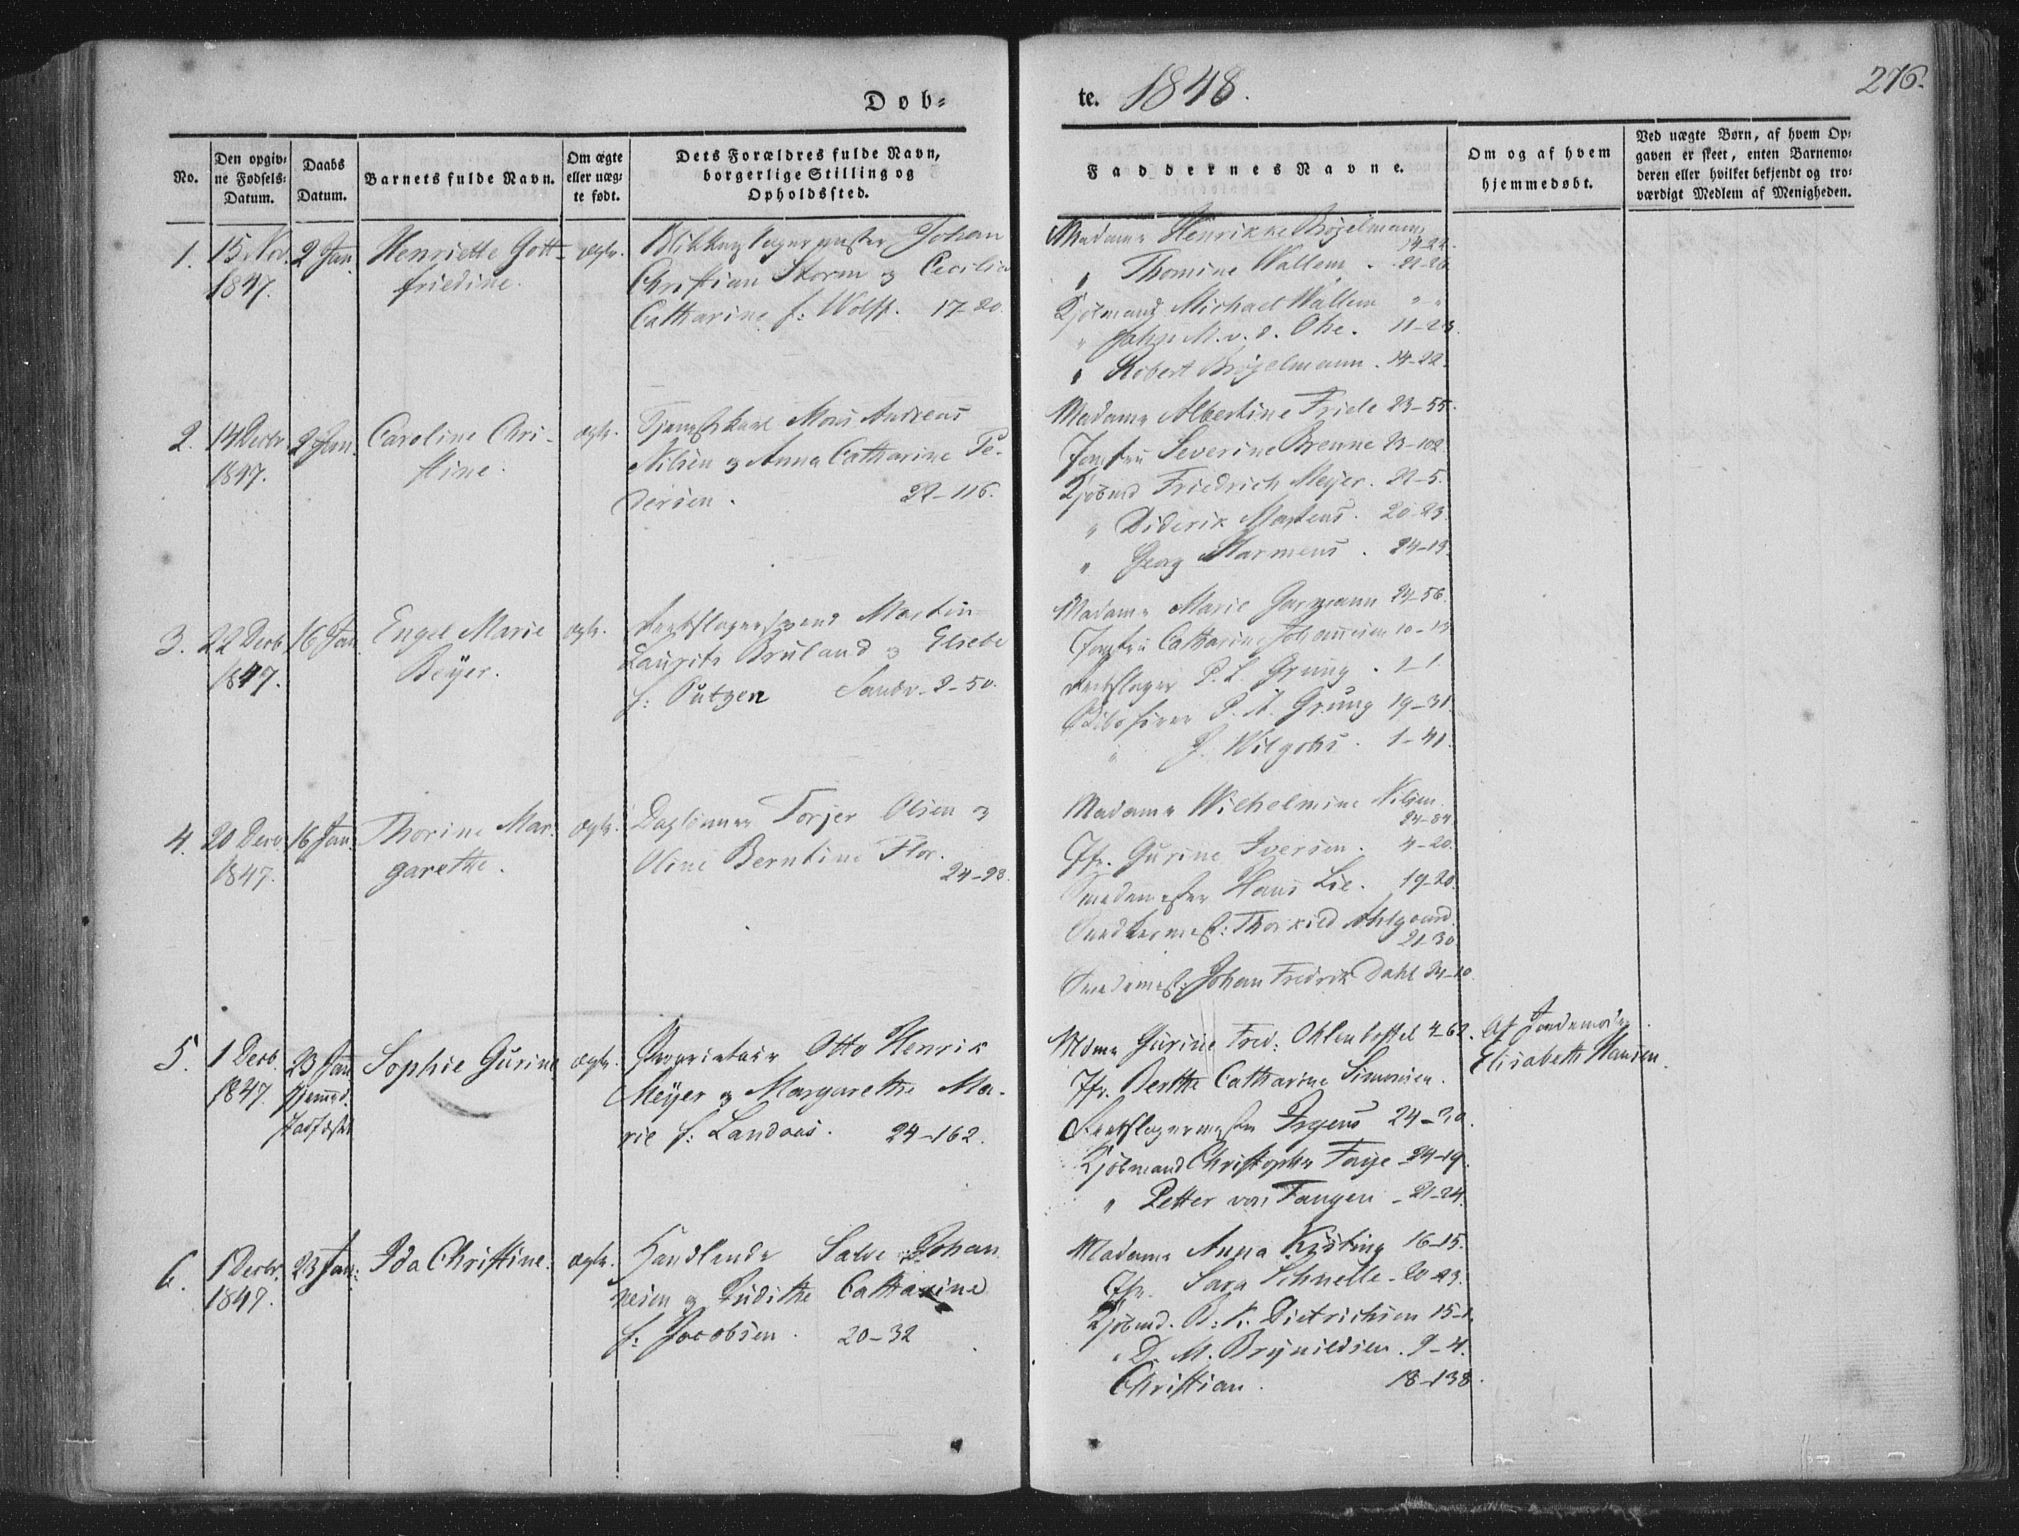 Døb-
te. 1848.
276.
No.
Den opgiv-
ne Fødsels-
Datum.
Daabs
Datum.
Barnets fulde Navn.
Om ægte
eller uæg-
te født.
Dets Forældres fulde Navn,
borgerlige Stilling og
Opholdssted.
Faddernes Navne.
Om og af hvem
hjemmedøbt.
Ved uægte Børn, af hvem Op-
gaven er skeet, enten Barnemo-
deren eller hvilket bekjendt og tro-
værdigt Medlem af Menigheden.
1.
15 Nov.
1847.
2 Jan.
Henriette Gott-
friedine.
ægte.
Blikkenslagermester Johan
Christian Storm og Cecilia
Catharine f: Wolff. 17-20.
Madame Henrikke Bøgelmann
14-22.
" Thomine Wallem . 21-26
Kjøbmand Michael Wallem " "
" Johan M. v. d. Ohe. 11-23.
" Robert Bøgelmann. 14-22.
2.
14 Decbr
1847.
2 Jan.
Caroline Chri-
stine.
ægte.
Tjenestkarl Mons Andreas
Nilsen og Anna Catharine Pe-
dersen. 22-116.
Madame Albertine Friele 23-55.
Jomfru Severine Brenne 23-102.
Kjøbmd Friedrich Meyer. 22-5.
" Diderik Martens. 20-23.
" Georg Harmens . 24-19.
3.
22 Decb
1847.
16 Jan
Engel Marie
Beyer.
ægte.
Martin
Laurits Bruland og Elsebe
f: Pütger Sandv. 2-50.
Madame Marie Garmann 24-56.
Jomfru Catharine Johannesen 10-13
P. L. Grung . 1-1
P. A. Grung 19-31.
" 1-41.
4.
20 Decb.
1847.
16 Jan
Thorine Mar-
garethe.
ægte.
Daglønner Torjer Olsen og
Oline Berntine Flor.
24-98.
Madame Wilhelmine Nilsen
24-84.
Jfr. Gurine Iversen. 4-20.
Smedemester Hans Lie. 19-20.
Thorkild
21-30.
Smedemest: Johan Fredrik Dahl 24-10
5.
1 Decb.
1847.
23 Jan
Hjemmed.
Sophie Gurine
ægte.
Proprietair Otto Henrik
Meyer og Margarethe Ma-
rie f: Landaas. 24-162.
Mdme Gurine Fred: Ohlenbostel 4-62.
Jfr. Berthe Catharine Simonsen.
Irgens 24-30.
Kjøbmand Christopher Faye 24-19.
" Petter von Tangen - 21-24.
Af Jordemoder
Elisabeth Hansen.
6.
1 Decbr.
1847.
23 Jan.
Ida Christine.
ægte.
Handlende Salve Johan-
nesen og Judithe Catharine
f: Jacobsen. 20-32
Madame Anna Kisting 16-15.
Jfr. Sara Schnelle. 20-23.
Kjøbmd. B. K. Dietrichsen 15-1.
" D. M. Brynildsen. 9-4.
Christian. 18-138.